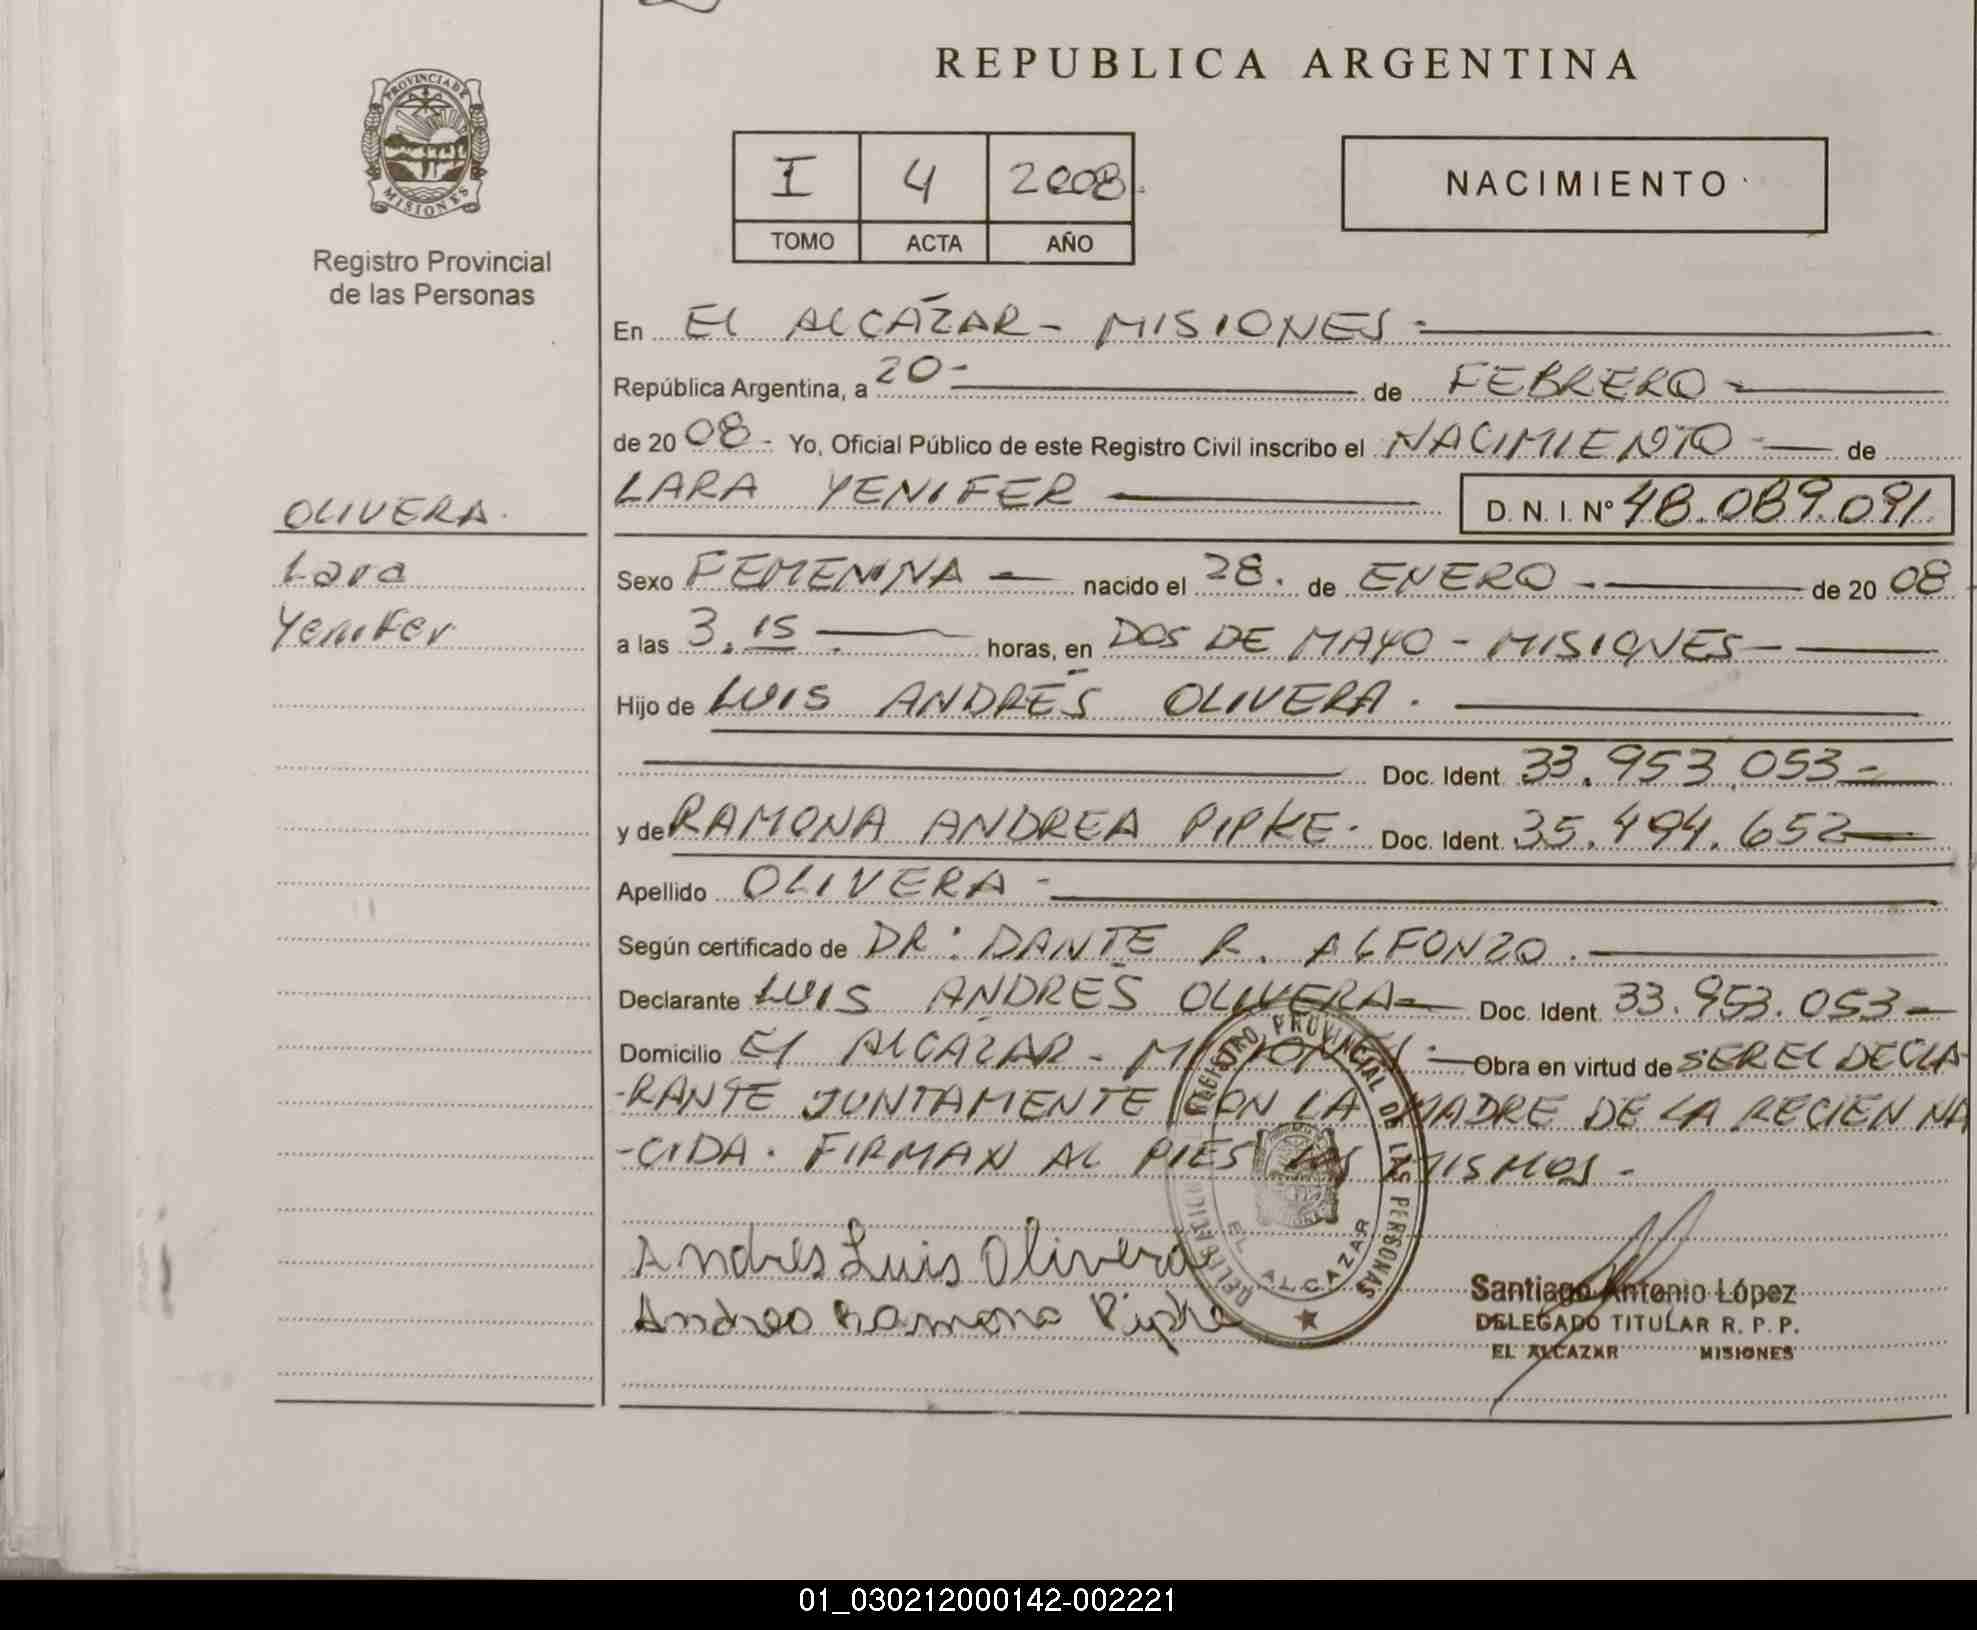 REPUBLICA ARGENTINA
PROVINCIA DE
MISIONES
Registro Provincial
de las Personas
I 4 2008.
TOMO ACTA AÑO
NACIMIENTO
En El ALCÁZAR - MISIONES -
República Argentina, a 20 - de FEBRERO -
de 20 08 - Yo, Oficial Público de este Registro Civil inscribo el NACIMIENTO - de
LARA YENIFER D. N. I. Nº 48.089.091
OLIVERA.
Lara
Yenifer
Sexo FEMENINA - nacido el 28. de ENERO - de 20 08
a las 3.15 horas, en DOS DE MAYO - MISIONES -
Hijo de LUIS ANDRÉS OLIVERA.
Doc. Ident. 33.953.053 -
y de RAMONA ANDREA PIPKE - Doc. Ident. 35.494.652
Apellido OLIVERA -
Según certificado de DR: DANTE R. ALFONZO.
Declarante LUIS ANDRÉS OLIVERA - Doc. Ident. 33.953.053 -
Domicilio El ALCÁZAR - MISIONES - Obra en virtud de SER EL DECLA-
-RANTE JUNTAMENTE CON LA MADRE DE LA RECIEN NA
-CIDA. FIRMAN AL PIES LOS MISMOS -
REGISTRO PROVINCIAL DE LAS PERSONAS
DELEGACION
EL ALCAZAR
Andres Luis Olivera
Andrea Ramona Pipke
Santiago Antonio López
DELEGADO TITULAR R. P. P.
EL ALCAZAR MISIONES
01_030212000142-002221